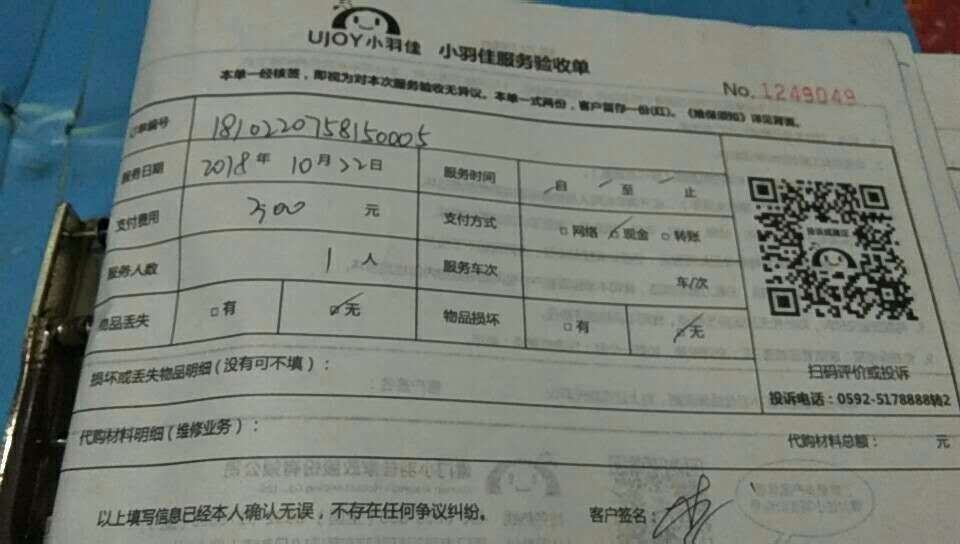 UJOY小羽佳 小羽佳服务验收单
No. 1249049
本单一经核签,即视为对本次服务验收无异议。本单一式两份,客户留存一份(红)。《维保须知》详见背面。
订单编号 1810220758150005
服务日期 2018年10月22日 服务时间 自 至 止
支付费用 元 支付方式 □网络 □现金 □转账
服务人数 1人 服务车次 车/次
物品丢失 □有 □无 物品损坏 □有 □无
扫码评价或投诉
损坏或丢失物品明细(没有可不填):
投诉电话:0592-5178888转2
代购材料明细(维修业务): 代购材料总额: 元
以上填写信息已经本人确认无误,不存在任何争议纠纷。 客户签名: